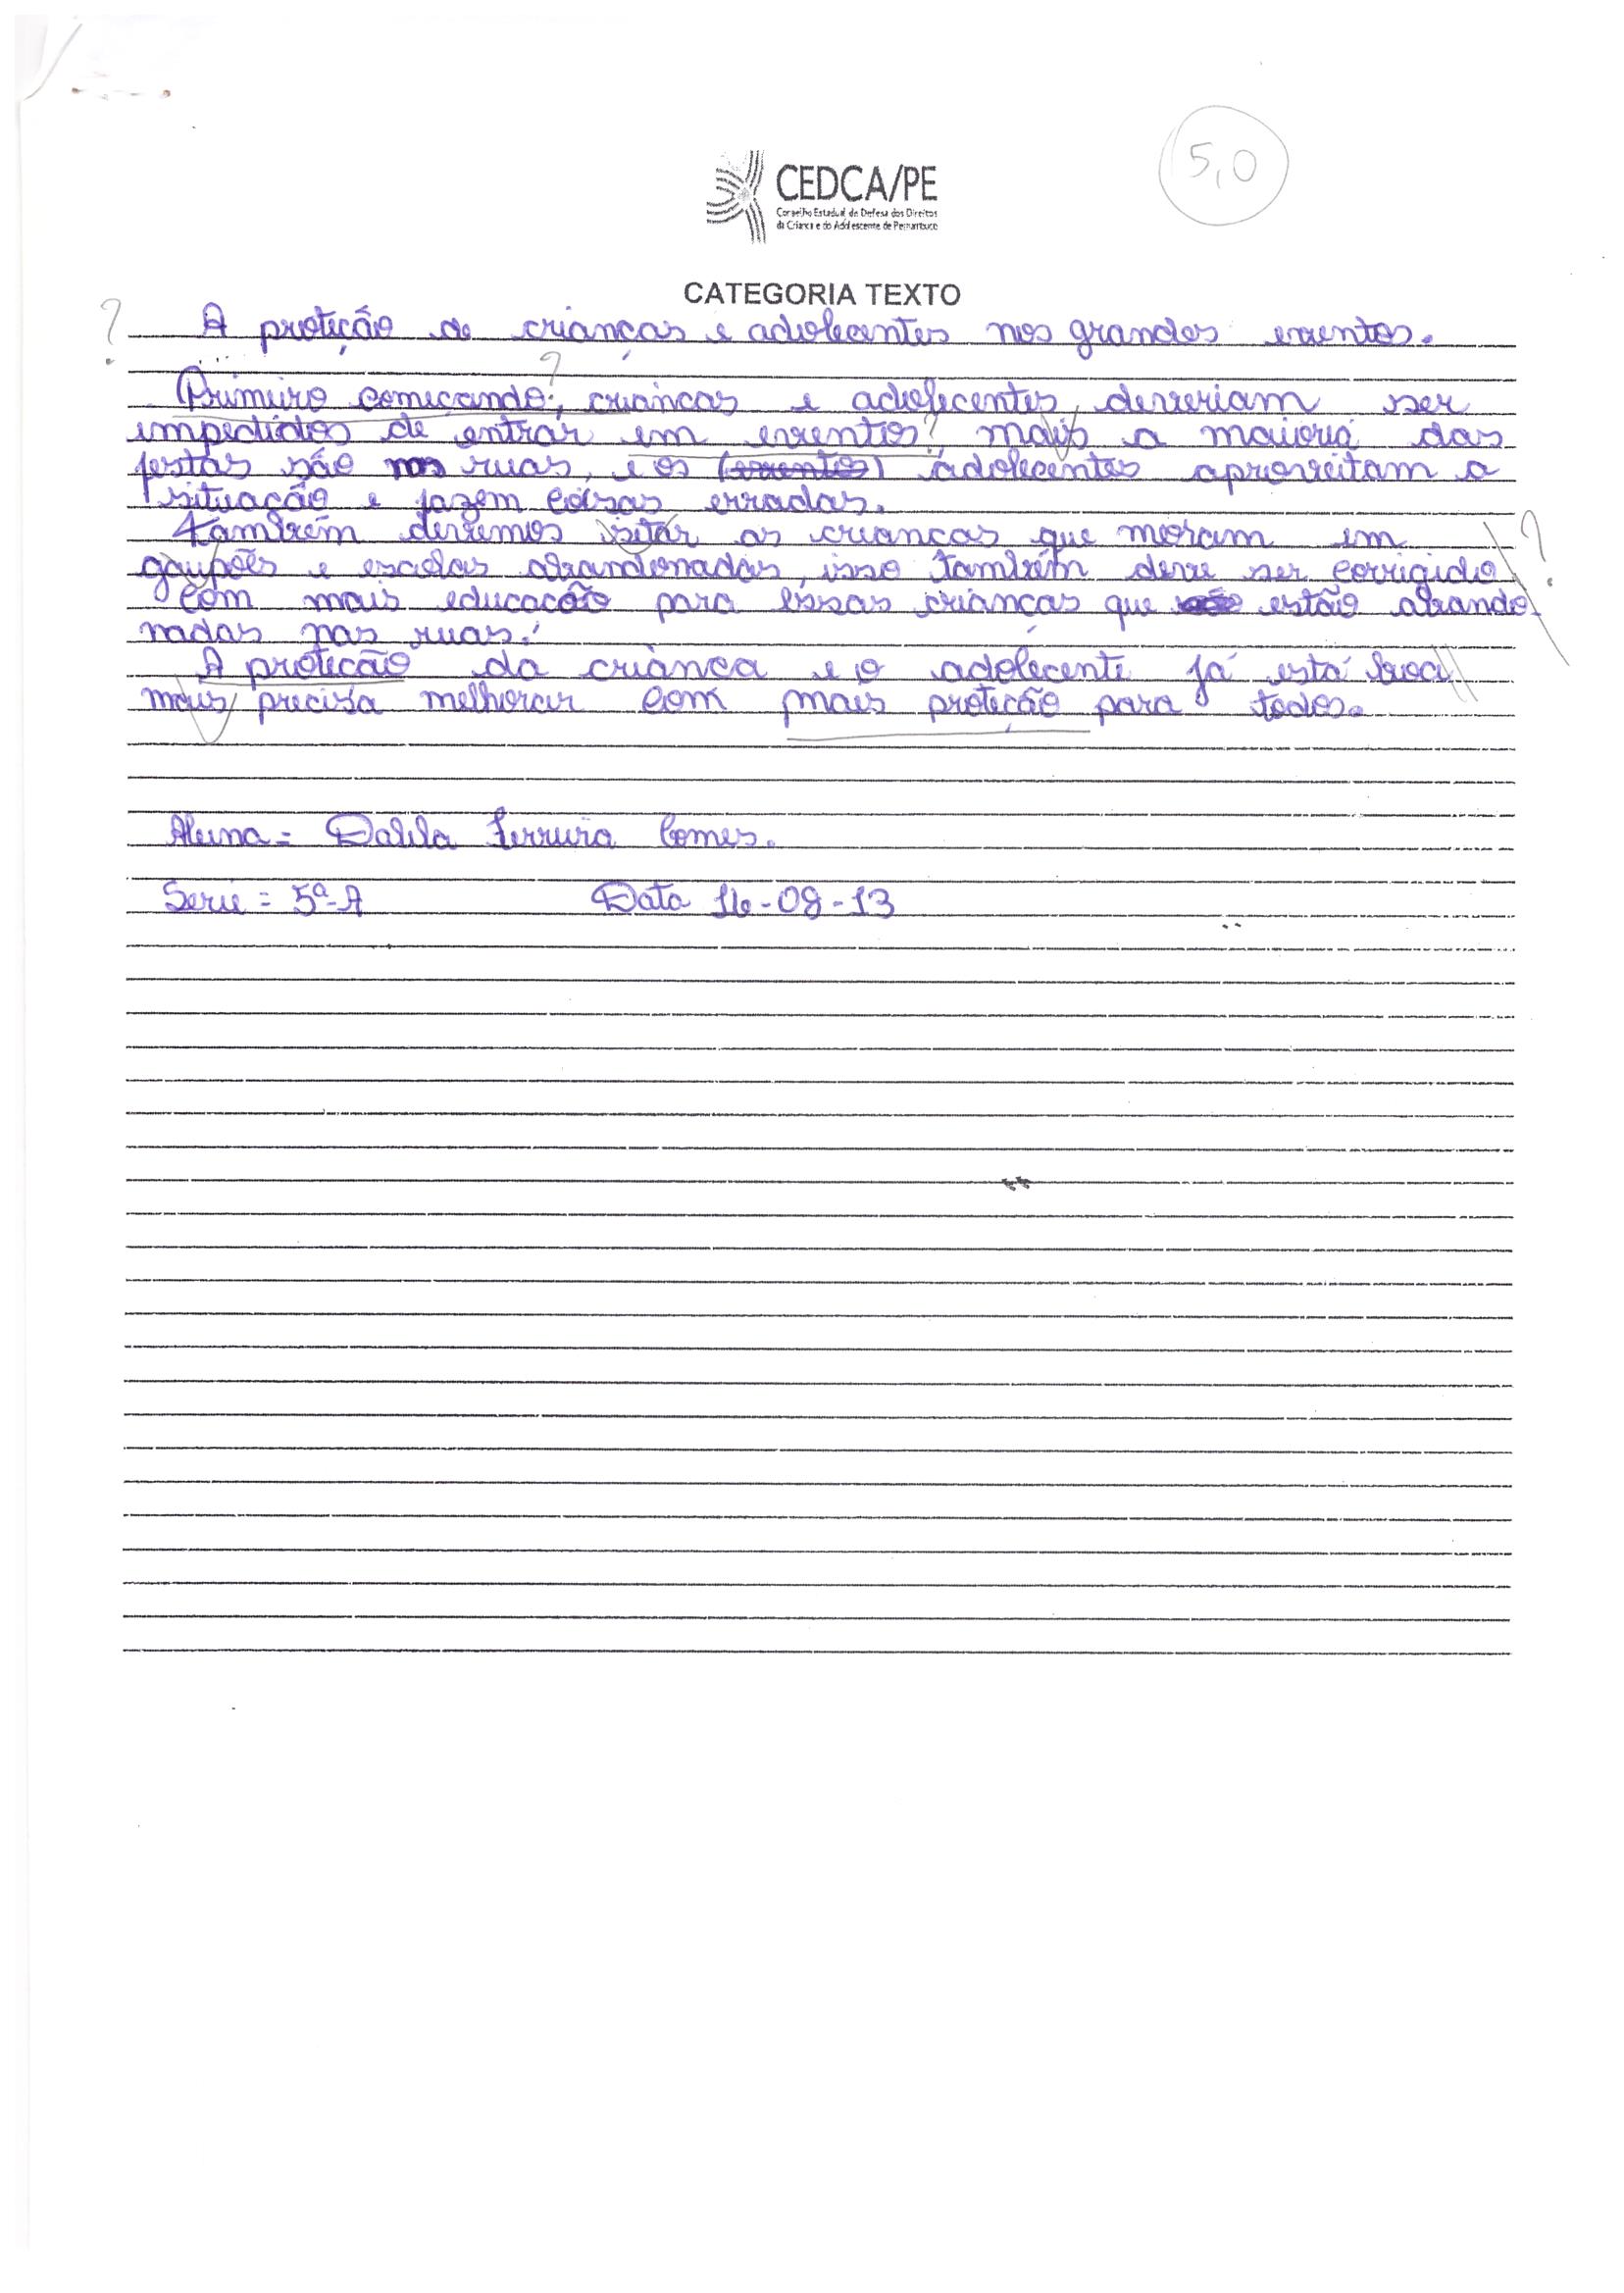 5,0
CEDCA/PE
Conselho Estadual de Defesa dos Direitos
da Criança e do Adolescente de Pernambuco
CATEGORIA TEXTO
? A proteção de crianças e adolecentes nos grandes eventos.
?
Primeiro começando, criancas e adolecentes, deveriam ser
impedidos de entrar em eventos? mais a maioria das
festas são nas ruas, e os (eventos) adolecentes aproveitam a
situação e fazem coisas erradas.
Também devemos vitar as criancas que moram em ?
gaupões e escolas abandonadas, isso também deve ser corrigido
com mais educacão para essas criancas que estão abando
nadas nas ruas.
A protecão da crianca e o adolecente já está boa
mais precisa melhorar com mais proteção para todos.
Aluna = Dalila Ferreira Gomes.
Serie = 5ª-A Data 16-08-13